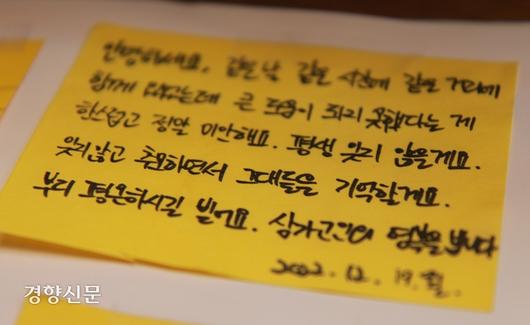 안녕하세요, 같은 날 같은 시간에 같은 거리에
함께 있었는데 큰 도움이 되지 못했다는 게
한스럽고 정말 미안해요. 평생 잊지 않을게요.
잊지않고 추모하면서 그대들을 기억할게요.
부디 평온하시길 빌어요. 삼가고인의 명복을 빕니다
12. 19. 월.
경향신문